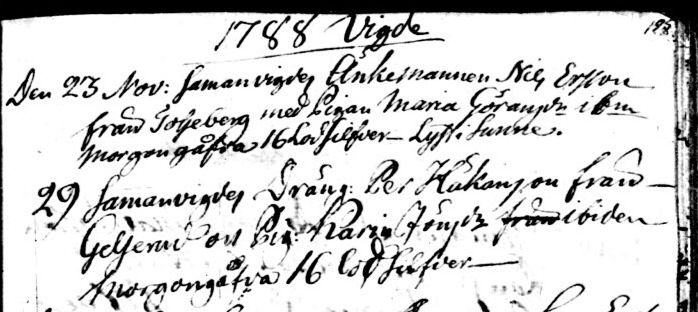 1788 Vigde
198.
Den 23 Nov: Samanvigdes Änkemannen Nils Ersson
från med Pigan Maria Göransdr ibm
Morgongåfva 16 Lod Silfver Lyst. Sunne.
29 Samanvigdes Dräng: Per Håkansson från
och Pig: Karin Jönsdr från ibiden
Morgongåfva 16 lod Silfver